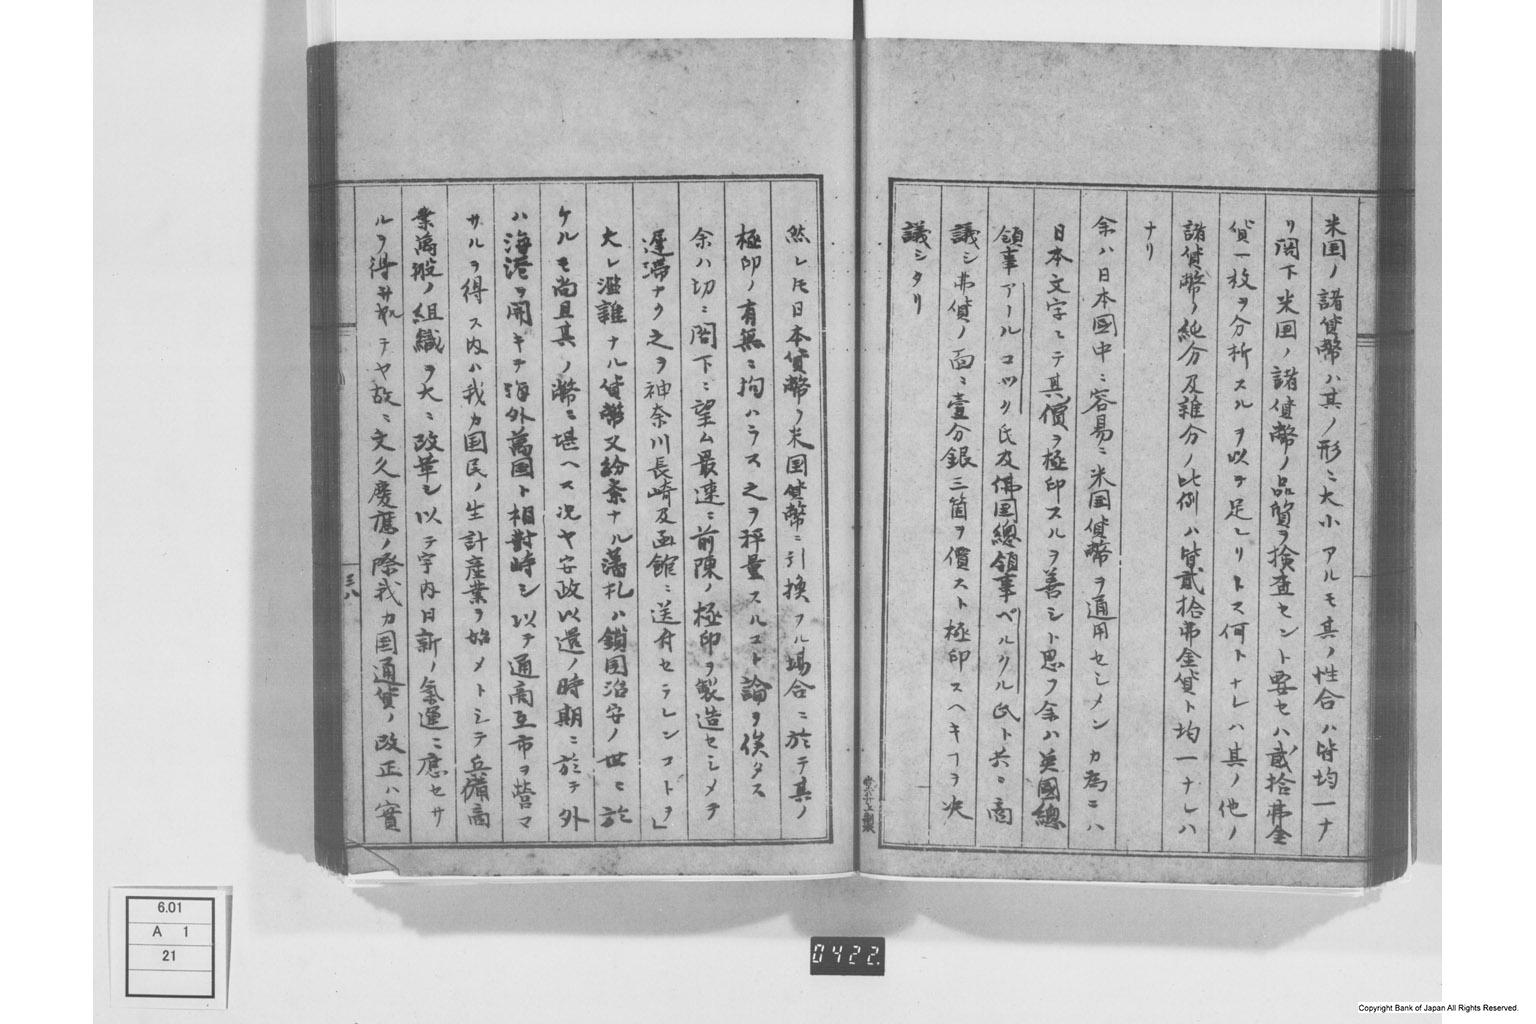 米国ノ諸貨幣ハ其ノ形ニ大小アルモ其ノ性合ハ皆均一ナ
リ閣下米国ノ諸貨幣ノ品質ヲ検査セント要セハ貳拾弗金
貨一枚ヲ分析スルヲ以テ足レリトス何トナレハ其ノ他ノ
諸貨幣ノ純分及雑分ノ比例ハ皆貳拾弗金貨ト均一ナレハ
ナリ
余ハ日本國中ニ容易ニ米国貨幣ヲ通用セシメンカ為ニハ
日本文字ニテ其價ヲ極印スルヲ善シト思フ余ハ英國總
領事アールコック氏及佛国總領事ベルクル氏ト共ニ商
議シ弗貨ノ面ニ壹分銀三箇ヲ價スト極印スヘキヿヲ决
議シタリ
然レ𪜈日本貨幣ヲ米国貨幣ニ引換フル場合ニ於テ其ノ
極印ノ有無ニ拘ハラス之ヲ秤量スルコト論ヲ俟タス
余ハ切ニ閣下ニ望ム最速ニ前陳ノ極印ヲ製造セシメテ
遅滞ナク之ヲ神奈川長崎及函館ニ送付セラレンコトヲ」
大レ濫雑ナル貨幣又紛紊ナル藩札ハ鎖国治安ノ世ニ於
ケルモ尚且其ノ幣ニ堪ヘス况ヤ安政以還ノ時期ニ於テ外
ハ海港ヲ開キテ海外萬国ト相對峙シ以テ通商互市ヲ営マ
サルヲ得ス内ハ我カ国民ノ生計産業ヲ始メトシテ兵備商
業萬般ノ組織ヲ大ニ改革シ以テ宇内日新ノ氣運ニ應セサ
ルヲ得サルニテヤ故ニ文久慶應ノ際我カ国通貨ノ改正ハ實
三八
6.01
A 1
21
0422
Copyright Bank of Japan All Rights Reserved.